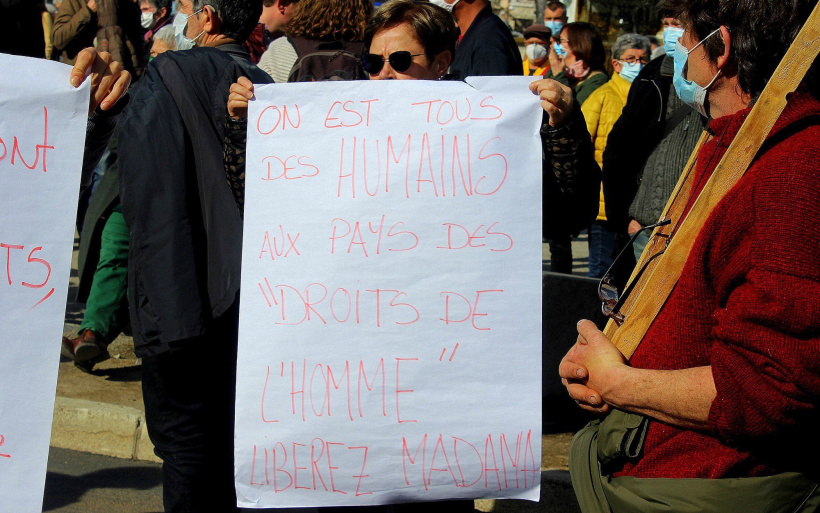 ON EST TOUS
DES HUMAINS
AUX PAYS DES
"DROITS DE
L'HOMME"
LIBEREZ MADAMA
ont
TS,